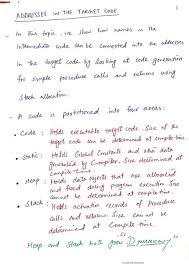 ADDRESSES IN THE TARGET CODE
- In this topic, we show how names in the
intermediate code can be converted into the addresses
in the target code by looking at code generation
for simple procedure calls and returns using
Stack allocation.
- A code is partitioned into four areas:
- Code : Holds executable target code. Size of the
target code can be determined at compile time.
- Static : Holds Global constants and other data
generated by Compiler. Size determined at
Compile time.
- Heap : Holds data objects that are allocated
and freed during program execution. Size
cannot be determined at Compile time.
- Stack : Holds activation records of Procedure
calls and returns. Size cannot be
determined at Compile time.
Heap and Stack both grow Dynamically.